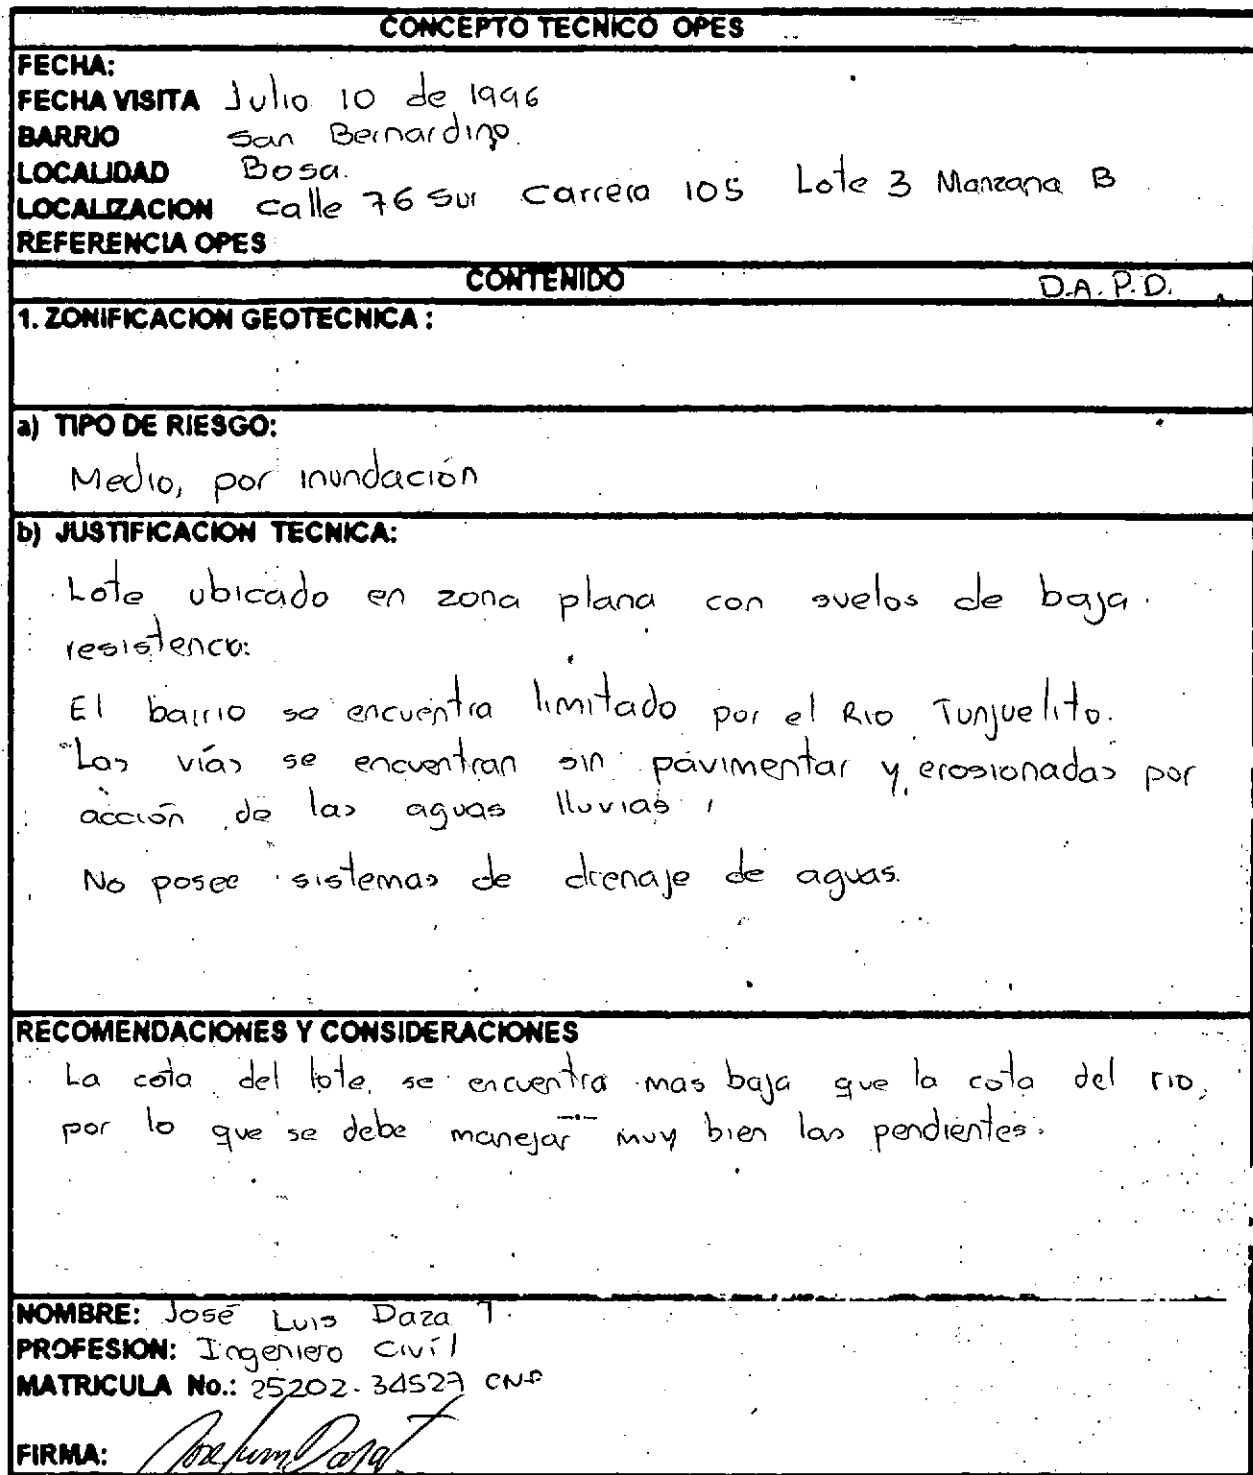 CONCEPTO TECNICO OPES
FECHA:
FECHA VISITA Julio 10 de 1996
BARRIO San Bernardino.
LOCALIDAD Bosa.
LOCALIZACION calle 76 Sur Carrera 105 Lote 3 Manzana B
REFERENCIA OPES
CONTENIDO D.A.P.D.
1. ZONIFICACION GEOTECNICA :
a) TIPO DE RIESGO:
Medio, por inundación
b) JUSTIFICACION TECNICA:
Lote ubicado en zona plana con suelos de baja
resistencia:
El barrio se encuentra limitado por el Rio Tunjuelito.
Las vías se encuentran sin pavimentar y erosionadas por
acción de las aguas lluvias
No posee sistemas de drenaje de aguas.
RECOMENDACIONES Y CONSIDERACIONES
La cota del lote, se encuentra mas baja que la cota del rio,
por lo que se debe manejar muy bien las pendientes.
NOMBRE: José Luis Daza T.
PROFESION: Ingeniero Civíl
MATRICULA No.: 25202-34527 CND
FIRMA: